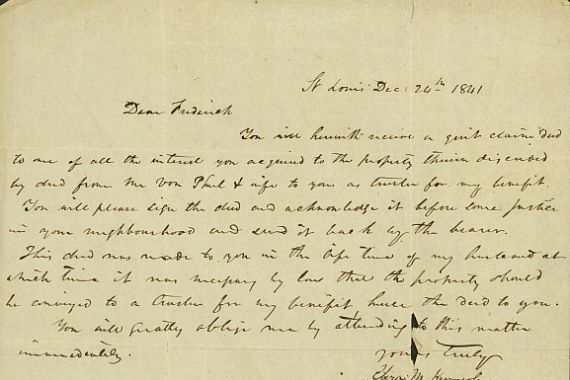 St Louis Dec: 24th 1841
Dear Frederick
You will herewith receive a quit claim deed
to me of all the interest you acquired to the property therein described
by deed from Mr Von Phul & wife to you as trustee for my benefit.
You will please sign the deed and acknowledge it before some Justice
in your neighbourhood and send it back by the bearer.
This deed was made to you in the life time of my husband at
which time it was necessary by law that the property should
be conveyed to a trustee for my benefit hence the deed to you.
You will greatly oblige me by attending to this matter
immediately.
yours truly
Eliza M.